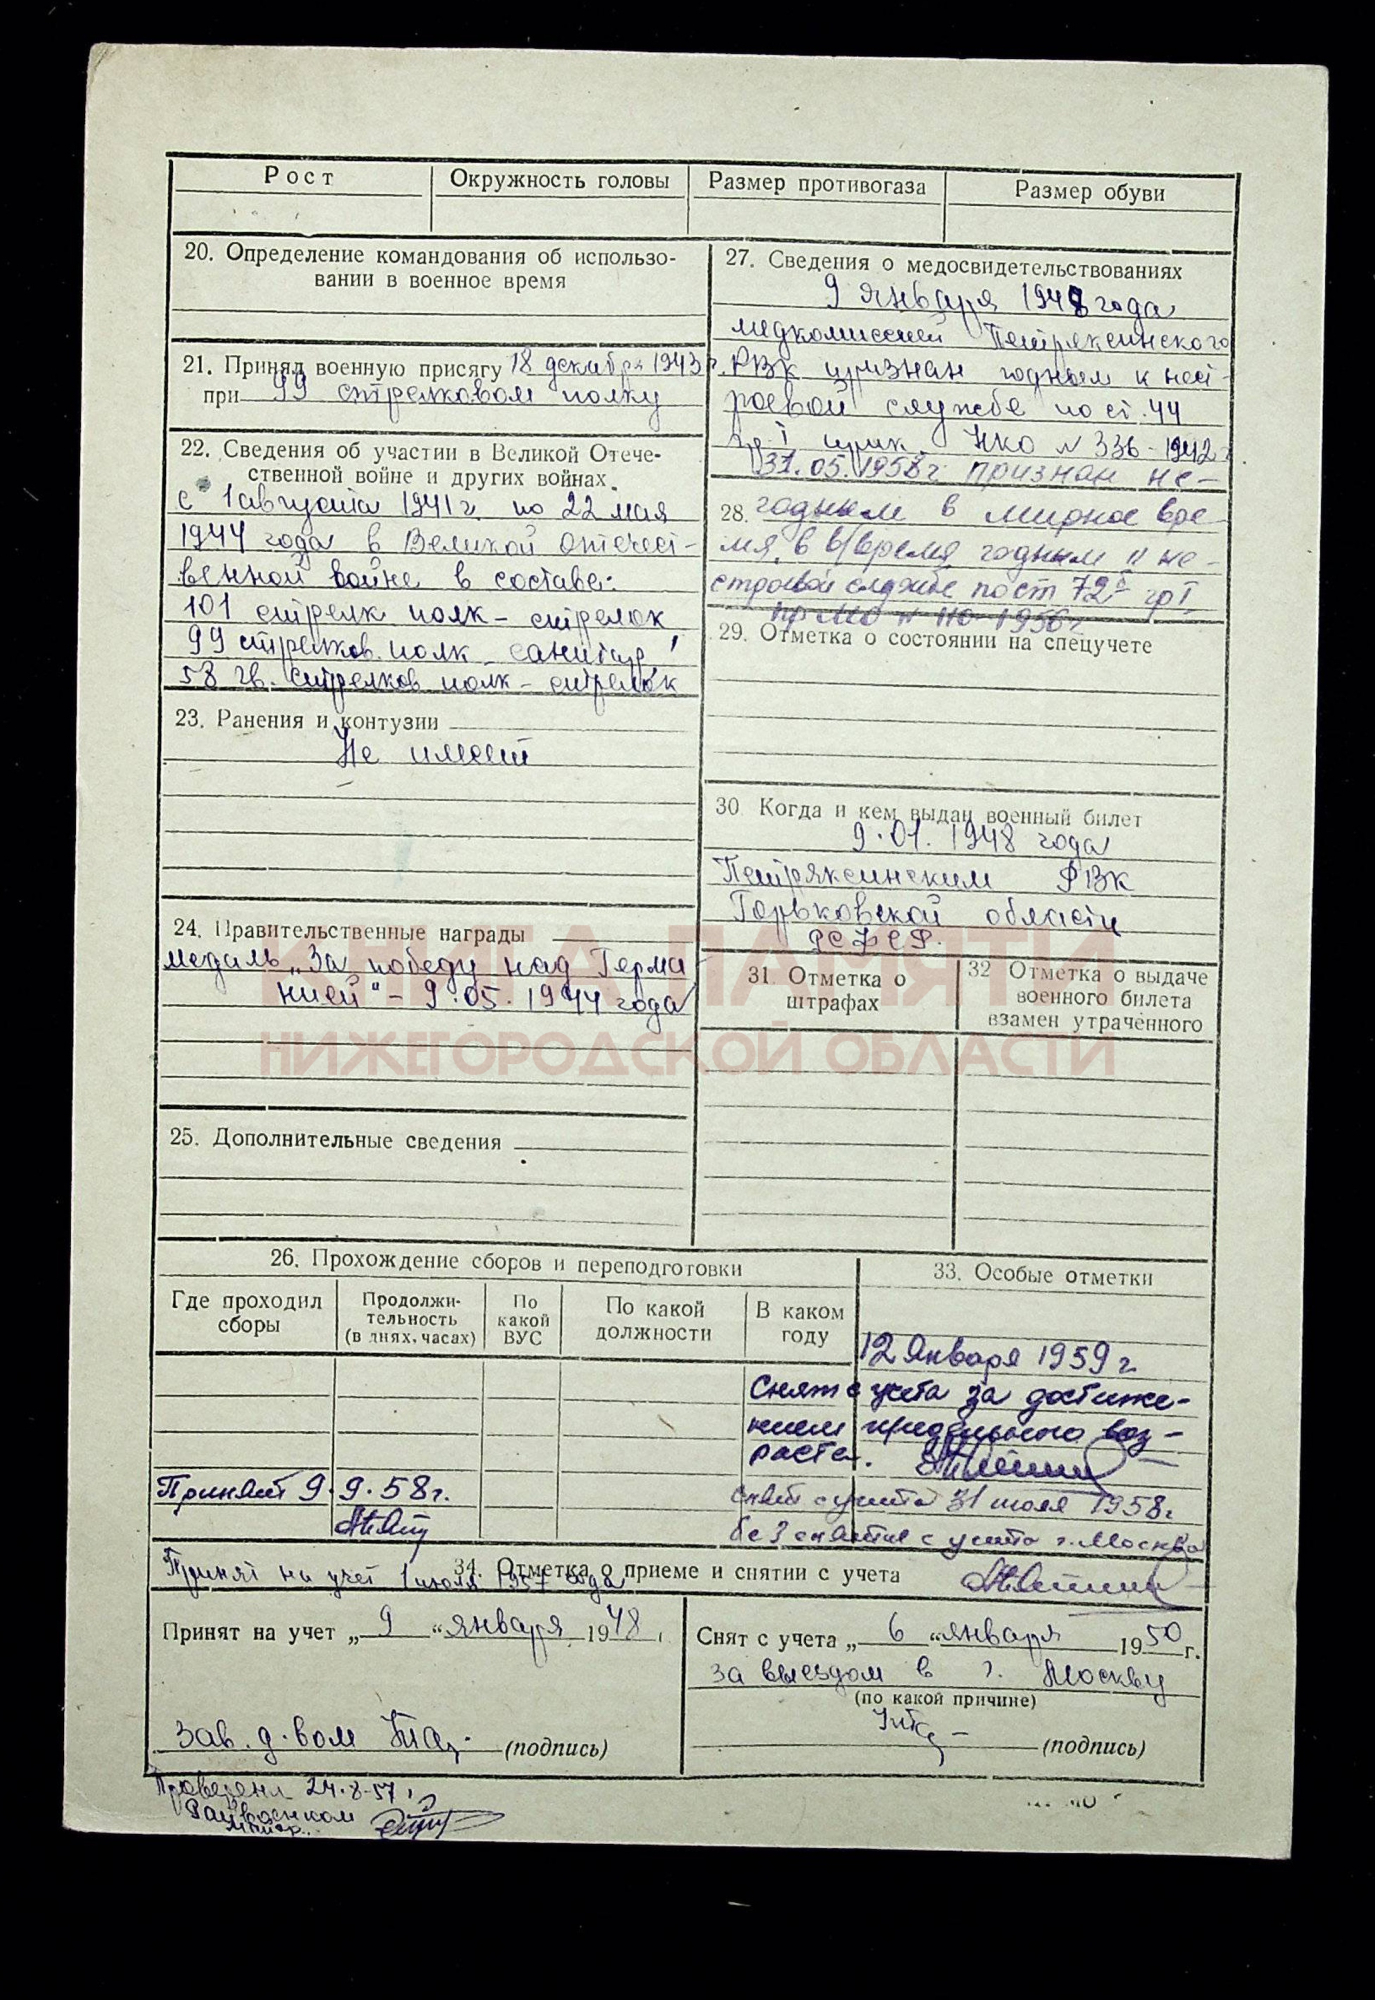 Рост
Окружность головы
Размер противогаза
Размер обуви
20. Определение командования об использо-
вании в военное время
21. Принял военную присягу 18 декабря 1943 г.
при 99 стрелковом полку
22. Сведения об участии в Великой Отече-
ственной войне и других войнах.
с 1 августа 1941 г. по 22 мая
1944 года в Великой отечест-
венной войне в составе:
101 стрелк. полк - стрелок
99 стрелков. полк - санитар
58 гв. стрелков полк - стрелок
23. Ранения и контузии
Не имеет
24. Правительственные награды
медаль „За победу над Герма
нией" - 9.05.1944 года
25. Дополнительные сведения
27. Сведения о медосвидетельствованиях
9 января 1948 года
медкомиссией Петряксинского
РВК признан годным к нест-
роевой службе по ст. 44
гр. I прик. НКО № 336-1942 г
31.05.1958 г признан не-
28. годным в мирное вре-
мя, в в/время годным к не-
строевой службе по ст 72 гр I
пр МО № 110 1956 г
29. Отметка о состоянии на спецучете
30. Когда и кем выдан военный билет
9.01.1948 года
Петряксинским РВК
Горьковской области
РСФСР.
31. Отметка о
штрафах
32 Отметка о выдаче
военного билета
взамен утраченного
КНИГА ПАМЯТИ
НИЖЕГОРОДСКОЙ ОБЛАСТИ
26. Прохождение сборов и переподготовки
Где проходил
сборы
Продолжи-
тельность
(в днях, часах)
По
какой
ВУС
По какой
должности
В каком
году
33. Особые отметки
12 Января 1959 г.
Снят с учета за достиже-
нием предельного воз-
раста.
Принят 9.9.58 г.
снят с учета 31 июля 1958 г.
без снятия с учета г. Москва
34. Отметка о приеме и снятии с учета
Принят на учет 1 июля 1957 года
Принят на учет „9“ января 1948 г.
Зав. д-вом
(подпись)
Снят с учета „6“ января 1950 г.
за выездом в г. Москву
(по какой причине)
(подпись)
Проверена 24.8.57 г.
Райвоенком
Майор